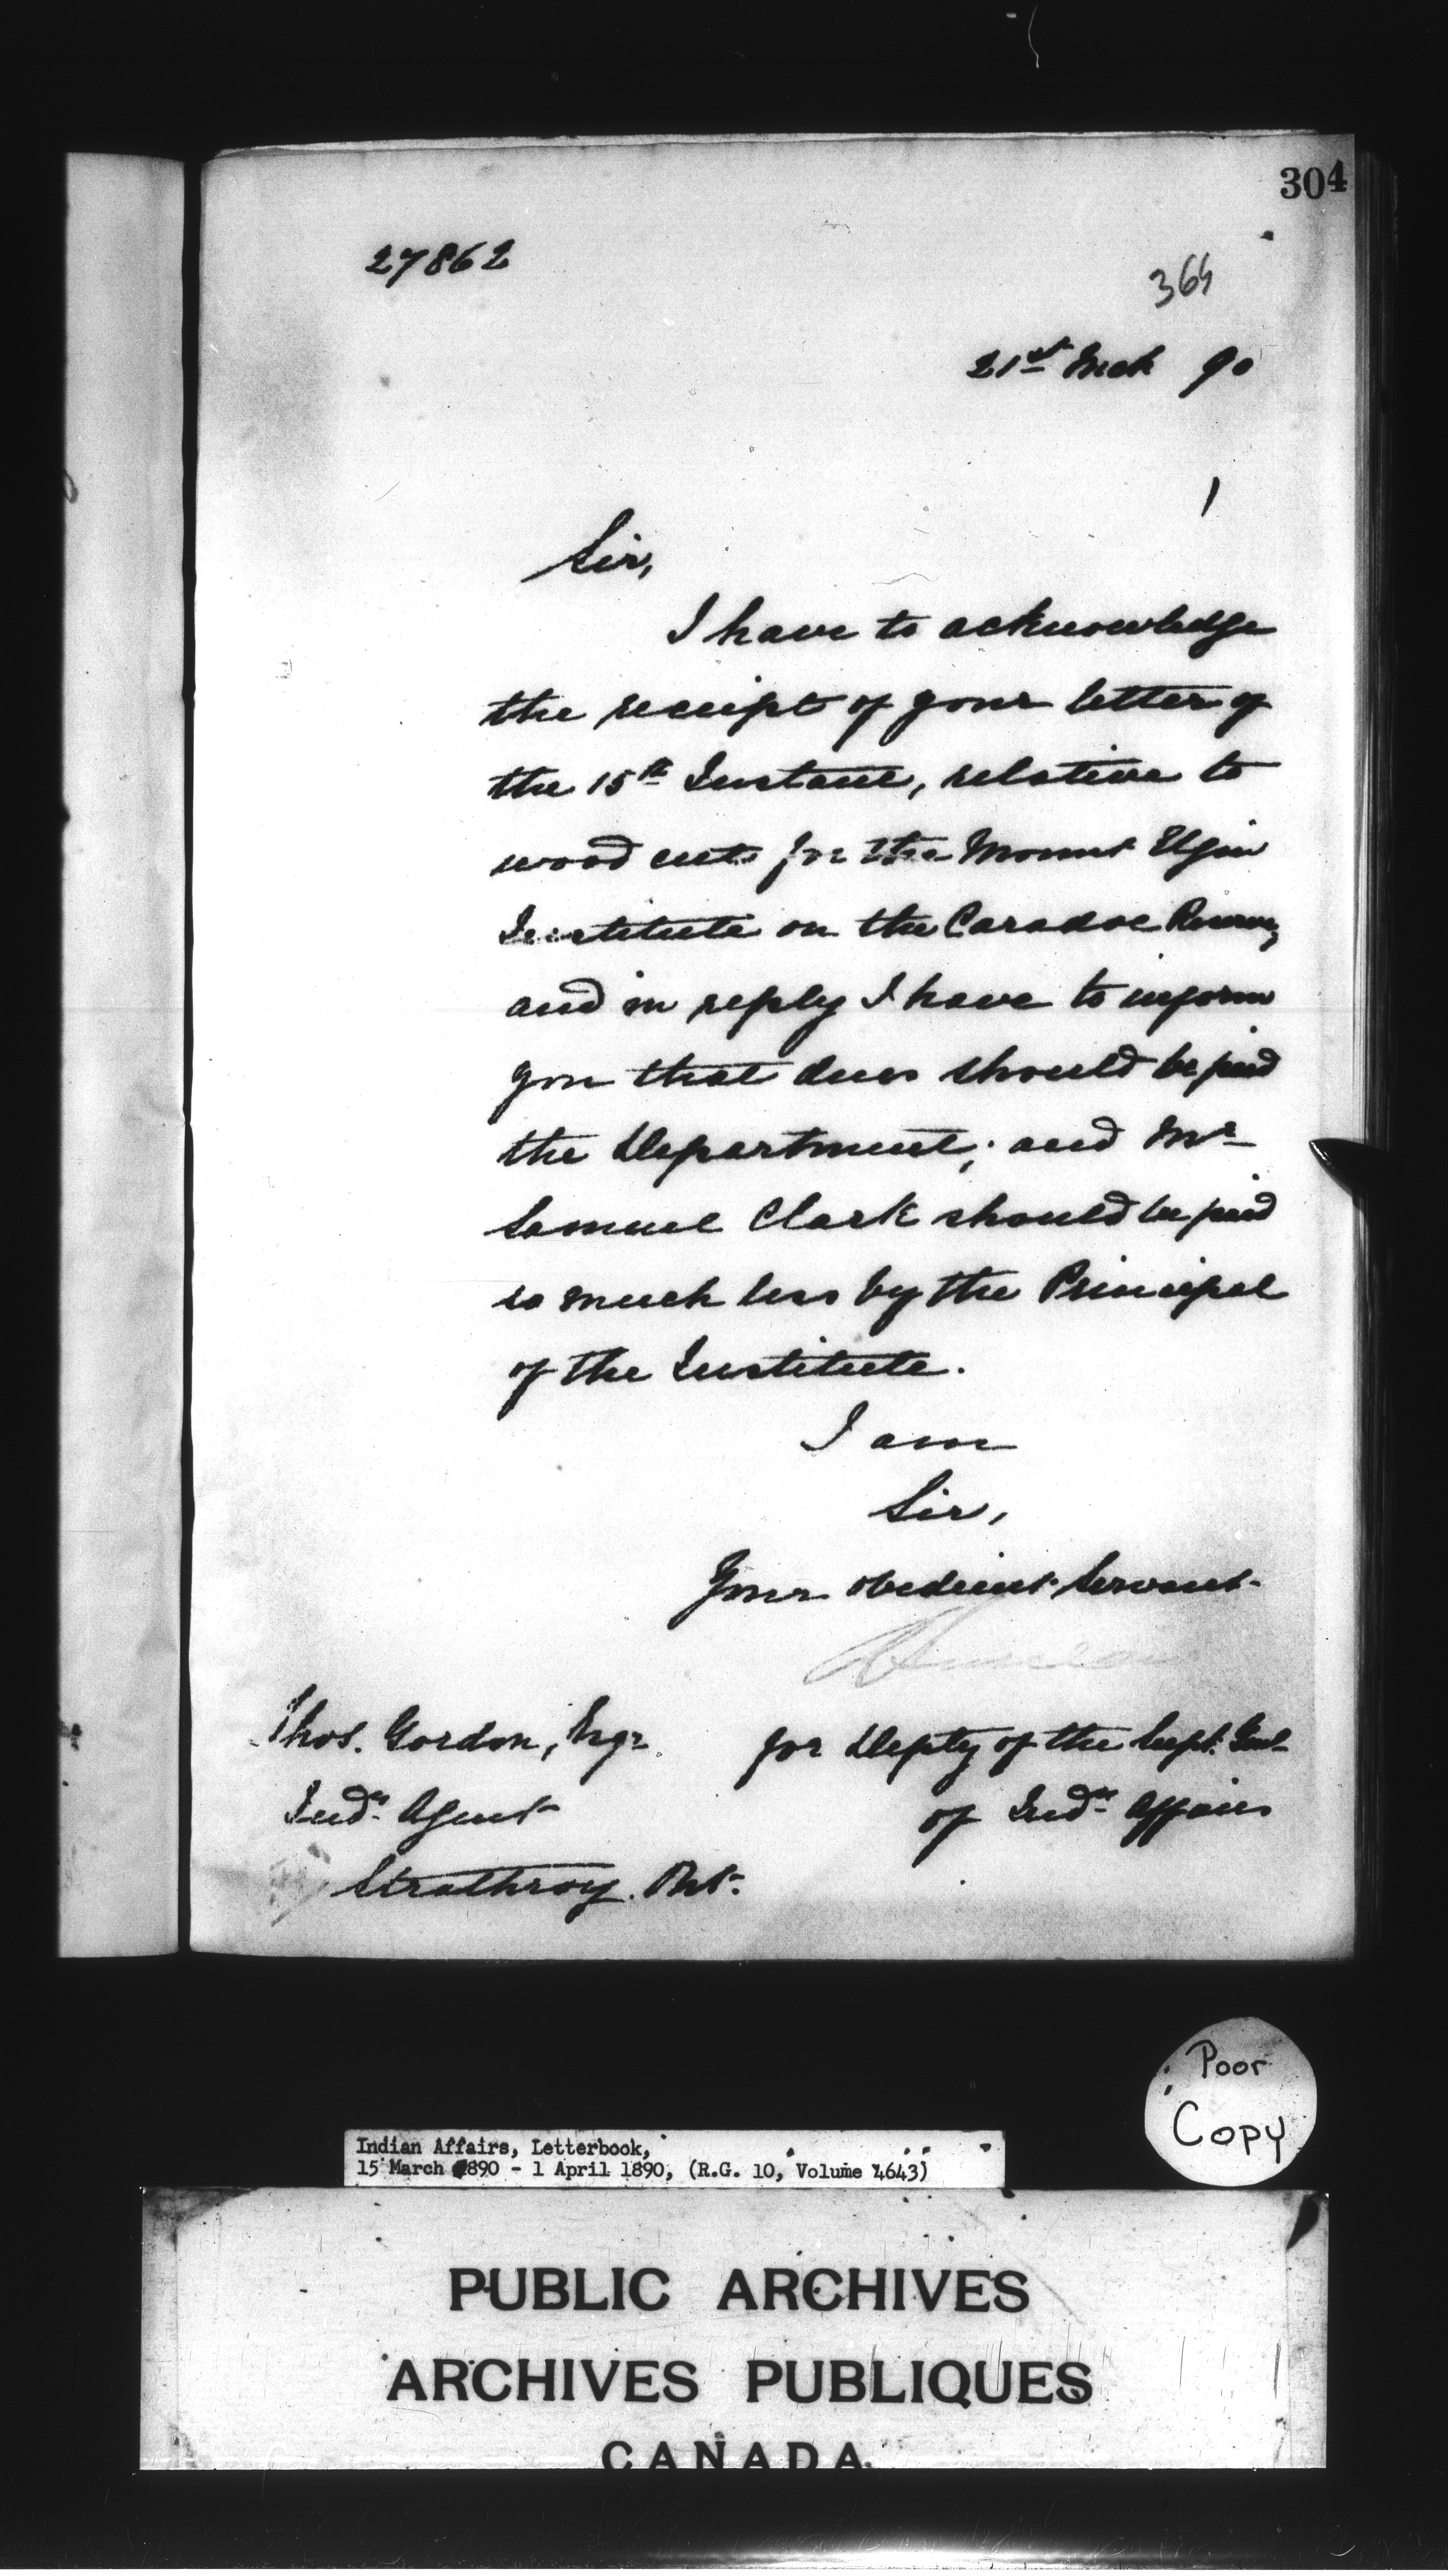 304
27862
364
21st Mch 90
Sir,
I have to acknowledge
the receipt of your letter of
the 15th Instant, relative to
wood cut for the Mount Elgin
Institute on the Caradoc Reserve,
and in reply I have to inform
you that dues should be paid
the Department; and Mr
Samuel Clark should be paid
so much less by the Principal
of the Institute.
I am
Sir,
Your obedient Servant
Thos. Gordon, Esqr.
Indn Agent
Strathroy. Ont.
for Depty of the Supt. Genl
of Indn Affairs
Poor
Copy
Indian Affairs, Letterbook,
15 March 1890 - 1 April 1890, (R.G. 10, Volume 4643)
PUBLIC ARCHIVES
ARCHIVES PUBLIQUES
CANADA